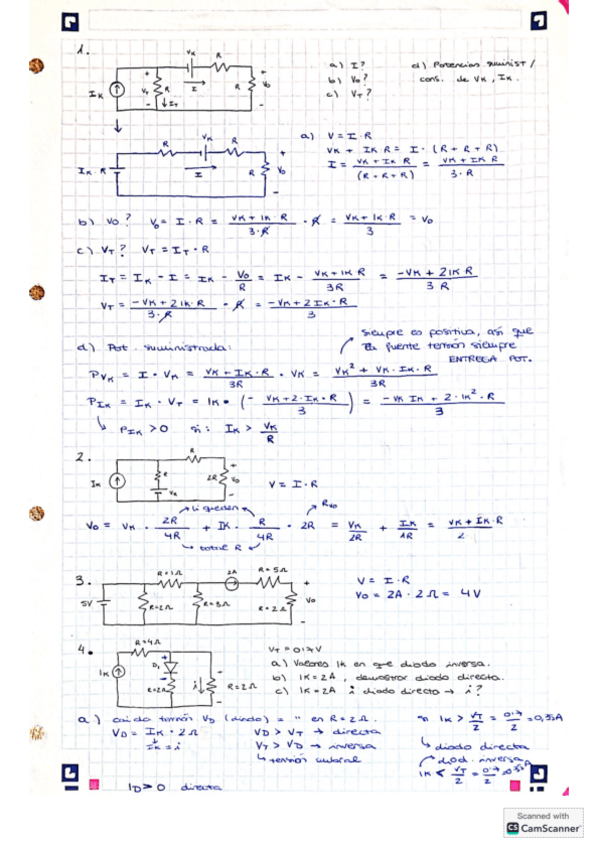 1.
a) I?
b) Vo?
c) VT?
d) Potencias suminist /
cons. de VK, IK.
IK VT R IT VK R I R Vo
IK·R R VK R I R Vo
a) V = I·R
VK + IK R = I · (R + R + R)
I = VK + IK R / (R+R+R) = VK + IK R / 3·R
b) Vo? Vo = I·R = VK + IK·R / 3·R · R = VK + IK·R / 3 = Vo
c) VT? VT = IT·R
IT = IK - I = IK - Vo / R = IK - VK + IK R / 3R = -VK + 2IK R / 3R
VT = -VK + 2IK·R / 3·R · R = -VK + 2IK·R / 3
d) Pot. suministrada:
siempre es positiva, así que
fuente tensión siempre
ENTREGA POT.
PVK = I·VK = VK - IK·R / 3R · VK = VK² + VK·IK·R / 3R
PIK = IK·VT = IK · (- VK + 2·IK·R / 3) = -VK IK + 2·IK²·R / 3
PIK > 0 si: IK > VK / R
2.
IK R VK R 2R Vo
V = I·R
Vo = VK · 2R / 4R + IK · R / 4R · 2R = VK / 2R + IK / 2R = VK + IK·R / 2
total R
3.
5V R=1Ω R=2Ω R=3Ω 2A R=5Ω R=2Ω Vo
V = I·R
Vo = 2A · 2Ω = 4V
4.
R=4Ω
IK D1 R=2Ω i R=2Ω
VT = 0,7V
a) Valores IK en que diodo inversa.
b) IK = 2A, demostrar diodo directa.
c) IK = 2A i diodo directo → i?
a) caida tensión VD (diodo) = " en R = 2Ω.
VD = IK · 2Ω
IK = i
VD > VT → directa
VT > VD → inversa
tensión umbral
IK > VT / 2 = 0,7 / 2 = 0,35A
diodo directa
diod. inversa
IK < VT / 2 = 0,7 / 2 = 0,35A
ID > 0 directa
Scanned with
CS CamScanner